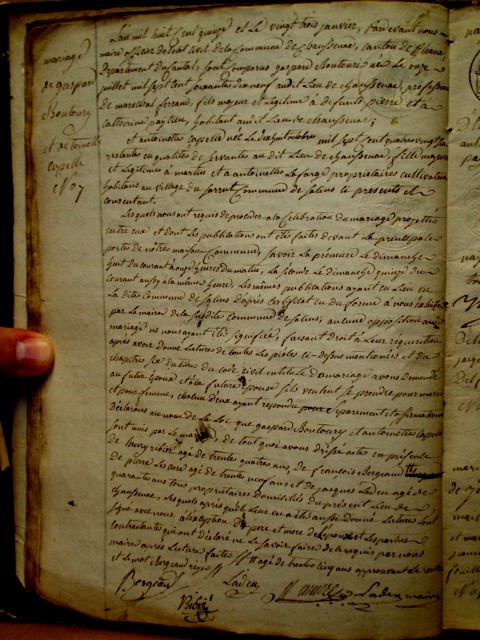 mariage
de gaspard
Boutoury
et antoinette
capelle
N° 7
L'an mil huit cent quinze et Le vingt trois janvier, pardevant nous
maire officier de L'état civil de La Commune de Chaussenac, canton de pleaux
département du Cantal, sont comparus gaspard Boutoury né Le onze
juillet mil sept cent soixante dix neuf audit Lieu de chaussenac, profession
de marechal ferrand, fils majeur et Légitime à defunts pierre et a
catherine, habitant audit Lieu de chaussenac;
et antoinette capelle née Le dix huit octobre mil sept cent quatre vingt
restante en qualités de servantes au dit Lieu de chaussenac, fille majeure
et Légitime à martin et a antoinette La farge propriétaires cultivateurs
habitans au village du Commune de Salins ici presents et
consentant.
Lesquels nous ont requis de proceder a La Célébration du mariage projetté
entre eux et dont Les publications ont été faites devant La principale
porte de notre maison Commune, savoir La premiere Le dimanche
huit du courant à onze heures du matin, La seconde Le dimanche quinze du
courant aussy a La meme heure, Les mêmes publications ayant eu Lieu en
La dites Commune de Salins d'après certificat en du forme a nous
par Le maire de La susdite Commune de Salins, aucune opposition audit
mariage ne nous ayant été signifiée, faisant droit à Leur requisition
après avoir donné Lecture de toutes Les pièces ci-dessus mentionées et du
chapitre six du titre du code civil intitulé du mariage avons demandé
au futur époux et à La future épouse s'ils veulent se prendre pour mari
et pour femme, chacun d'eux ayant repondu séparement et affirmativement
Déclarons au nom de La Loi que gaspard Boutoury et antoinette capelle
sont unis par Le mariage, de tout quoi avons dressé acte en présence
de ribier agé de trente quatre ans, de françois Bergeaud
de pierre agé de trente neuf ans et de jacques Ladeu agé de
quarante ans tous propriétaires domiciliés du présent Lieu de
chaussenac, Lesquels après qu'il Leur en a été aussi donné Lecture L'ont
signé avec nous à L'exception des père et mere de L'épouse et Les parties
contractantes qui ont déclaré ne Le savoir faire de ce requis par nous
maire après Lecture faites agé de trente cinq ans approuvant Le renvoi
et Le mot Bergeaud rayé
Bergeaud
Ladeu
Ladeu maire
Ribier